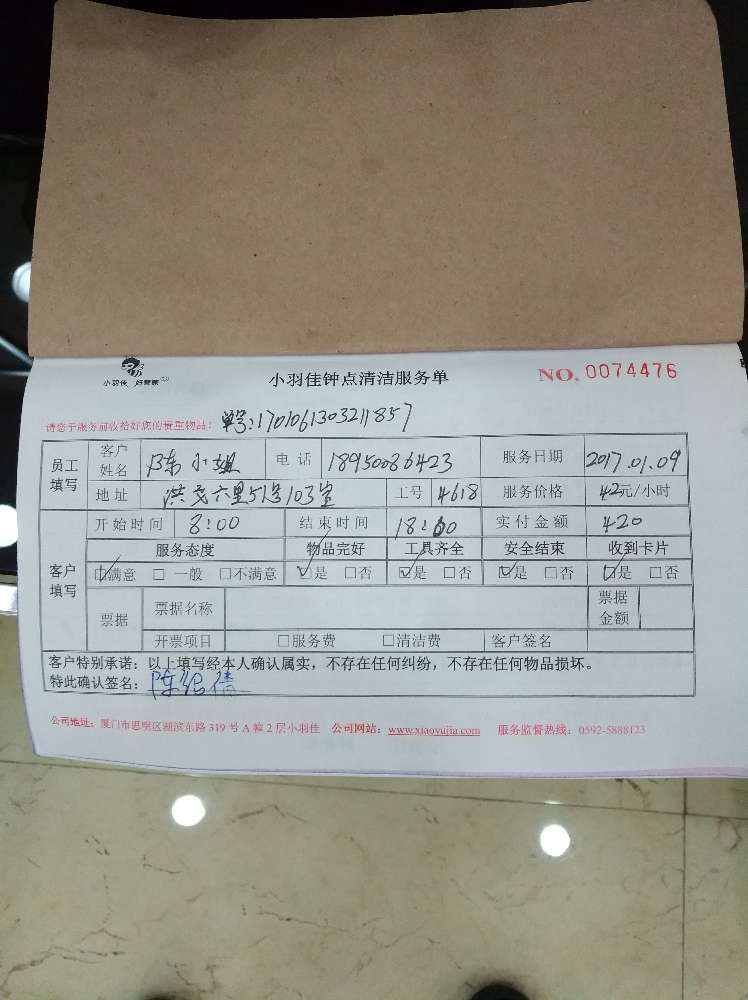 小羽佳 好管家
小羽佳钟点清洁服务单
NO. 0074476
请您于服务前收拾好您的贵重物品! 单号:1701061303211857
员工填写 客户姓名 陈小姐 电话 18950086423 服务日期 2017.01.09
地址 洪文六里51号103室 工号 4618 服务价格 42元/小时
客户填写 开始时间 8:00 结束时间 18:00 实付金额 420
服务态度 物品完好 工具齐全 安全结束 收到卡片
☑满意 □一般 □不满意 ☑是 □否 ☑是 □否 ☑是 □否 ☑是 □否
票据 票据名称 票据金额
开票项目 □服务费 □清洁费 客户签名
客户特别承诺:以上填写经本人确认属实,不存在任何纠纷,不存在任何物品损坏。
特此确认签名:陈
公司地址:厦门市思明区湖滨东路319号A幢2层小羽佳 公司网站:www.xiaoyujia.com 服务监督热线:0592-5888123